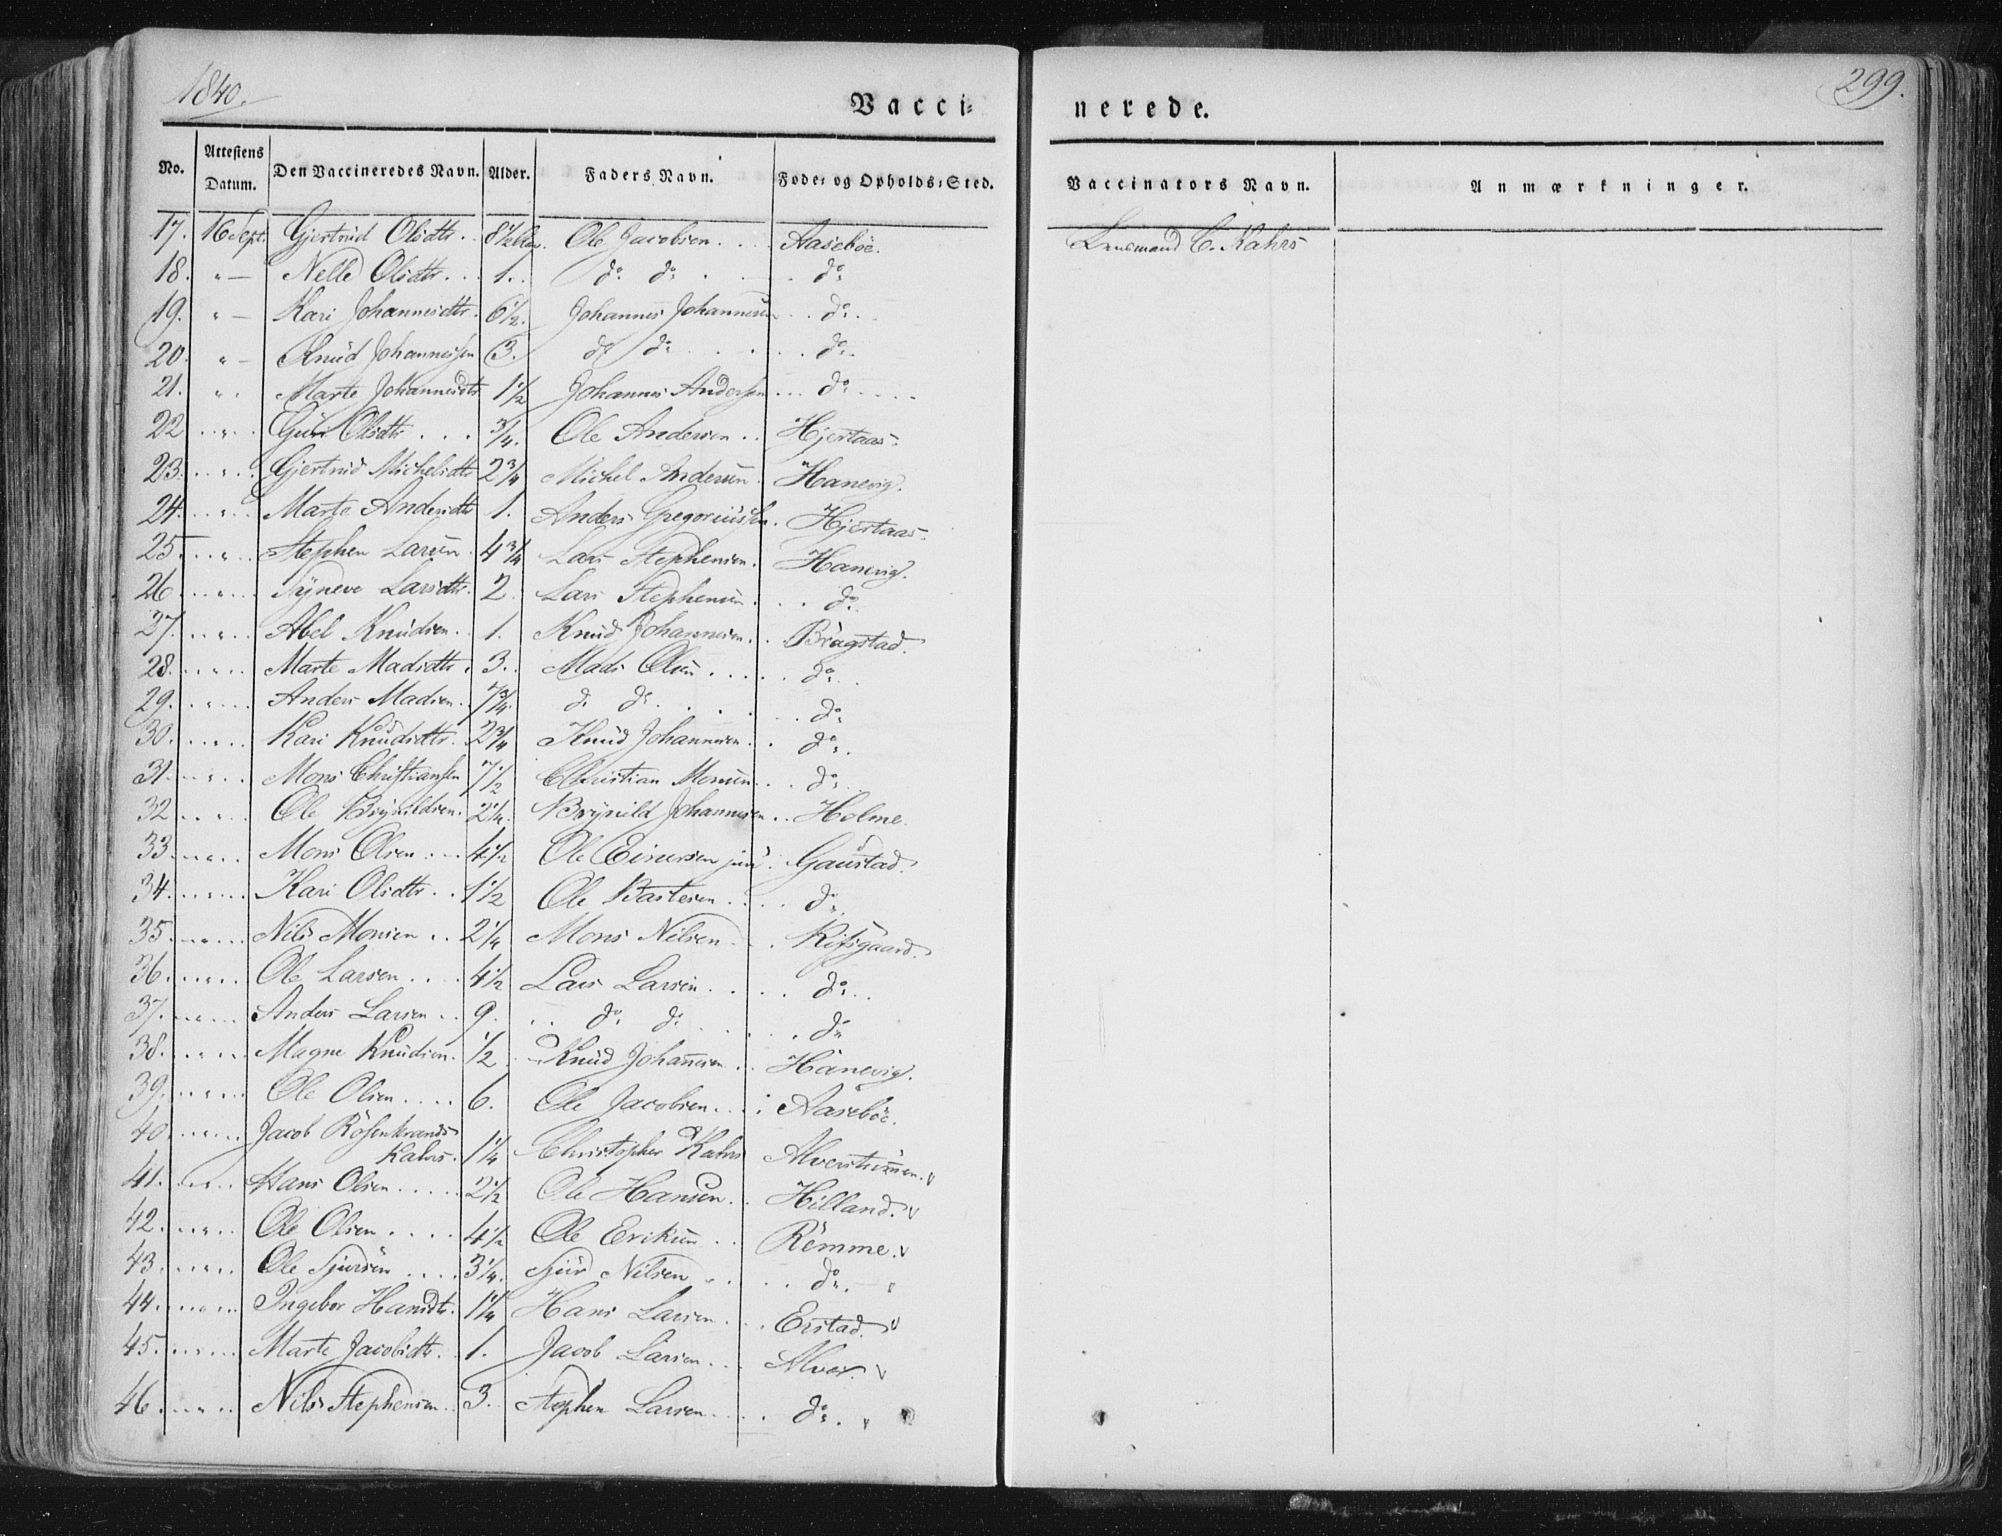 1840.
299.
Vacci=
nerede.
No. Attestens Datum. Den Vaccineredes Navn. Alder. Faders Navn. Føde= og Opholds=Sted. Vaccinators Navn. Anmærkninger.
17. 16 Sept. Gjertrud Olsdtr. 8½ Ole Jacobsen. Aasebøe. Lensmand C. Kahrs
18. " — Nelle Olsdtr. 1. do. do. do.
19. " — Kari Johannesdtr. 6½. Johannes Johannesen do.
20. " — Knud Johannessen 3. do. do. do.
21. " Marte Johannesdtr 1½ Johannes Andersen do.
22 " Guri Olsdtr ¾. Ole Andersen Hjertaas.
23. " Gjertrud Michelsdtr 2¾ Michel Andersen Hanevig.
24. " Marte Andersdtr 1. Anders Gregoriussen. Hjertaas.
25. " Stephen Larsen 4¾ Lars Stephensen. Hanevig.
26 " Synneve Larsdtr. 2. Lars Stephensen do.
27. " Abel Knudsen 1. Knud Johannesen Bragstad.
28. " Marte Madsdtr. 3. Mads Olsen do.
29. " Anders Madsen. 7¾. d. do. do.
30. " Kari Knudsdtr. 2¾ Knud Johannesen do.
31. " Mons Christiansen 7½ Christian Monsen do.
32 " Ole Brynildsen. 2¼. Brynild Johannesen Holme.
33. " Mons Olsen 4½ Ole Einersen jun. Gaustad.
34. " Kari Olsdtr. 1½ Ole Bastesen do.
35. " Nils Monsen 2¼ Mons Nilsen Risgaard.
36. " Ole Larsen 4½ Lars Larsen do.
37. " Anders Larsen 9. do. do. do
38. " Magne Knudsen. ½ Knud Johannesen Hanevig.
39. " Ole Olsen 6. Ole Jacobsen Aasebøe.
40. " Jacob Rosenkrands
Kahrs. 1¼ Christopher Kahrs Alverstrømen. v
41. " Hans Olsen 2½ Ole Hansen Hilland. v
42. " Ole Olsen 4½ Ole Eriksen Remme. v
43. " Ole Sjursen 3¼. Sjur Nilsen do. v
44. " Ingebor Hansdtr. 1¼ Hans Larsen Erstad. v
45. " Marte Jacobsdtr. 1. Jacob Larsen Alver. v
46. " Nils Stephensen 3. Stephen Larsen do. v